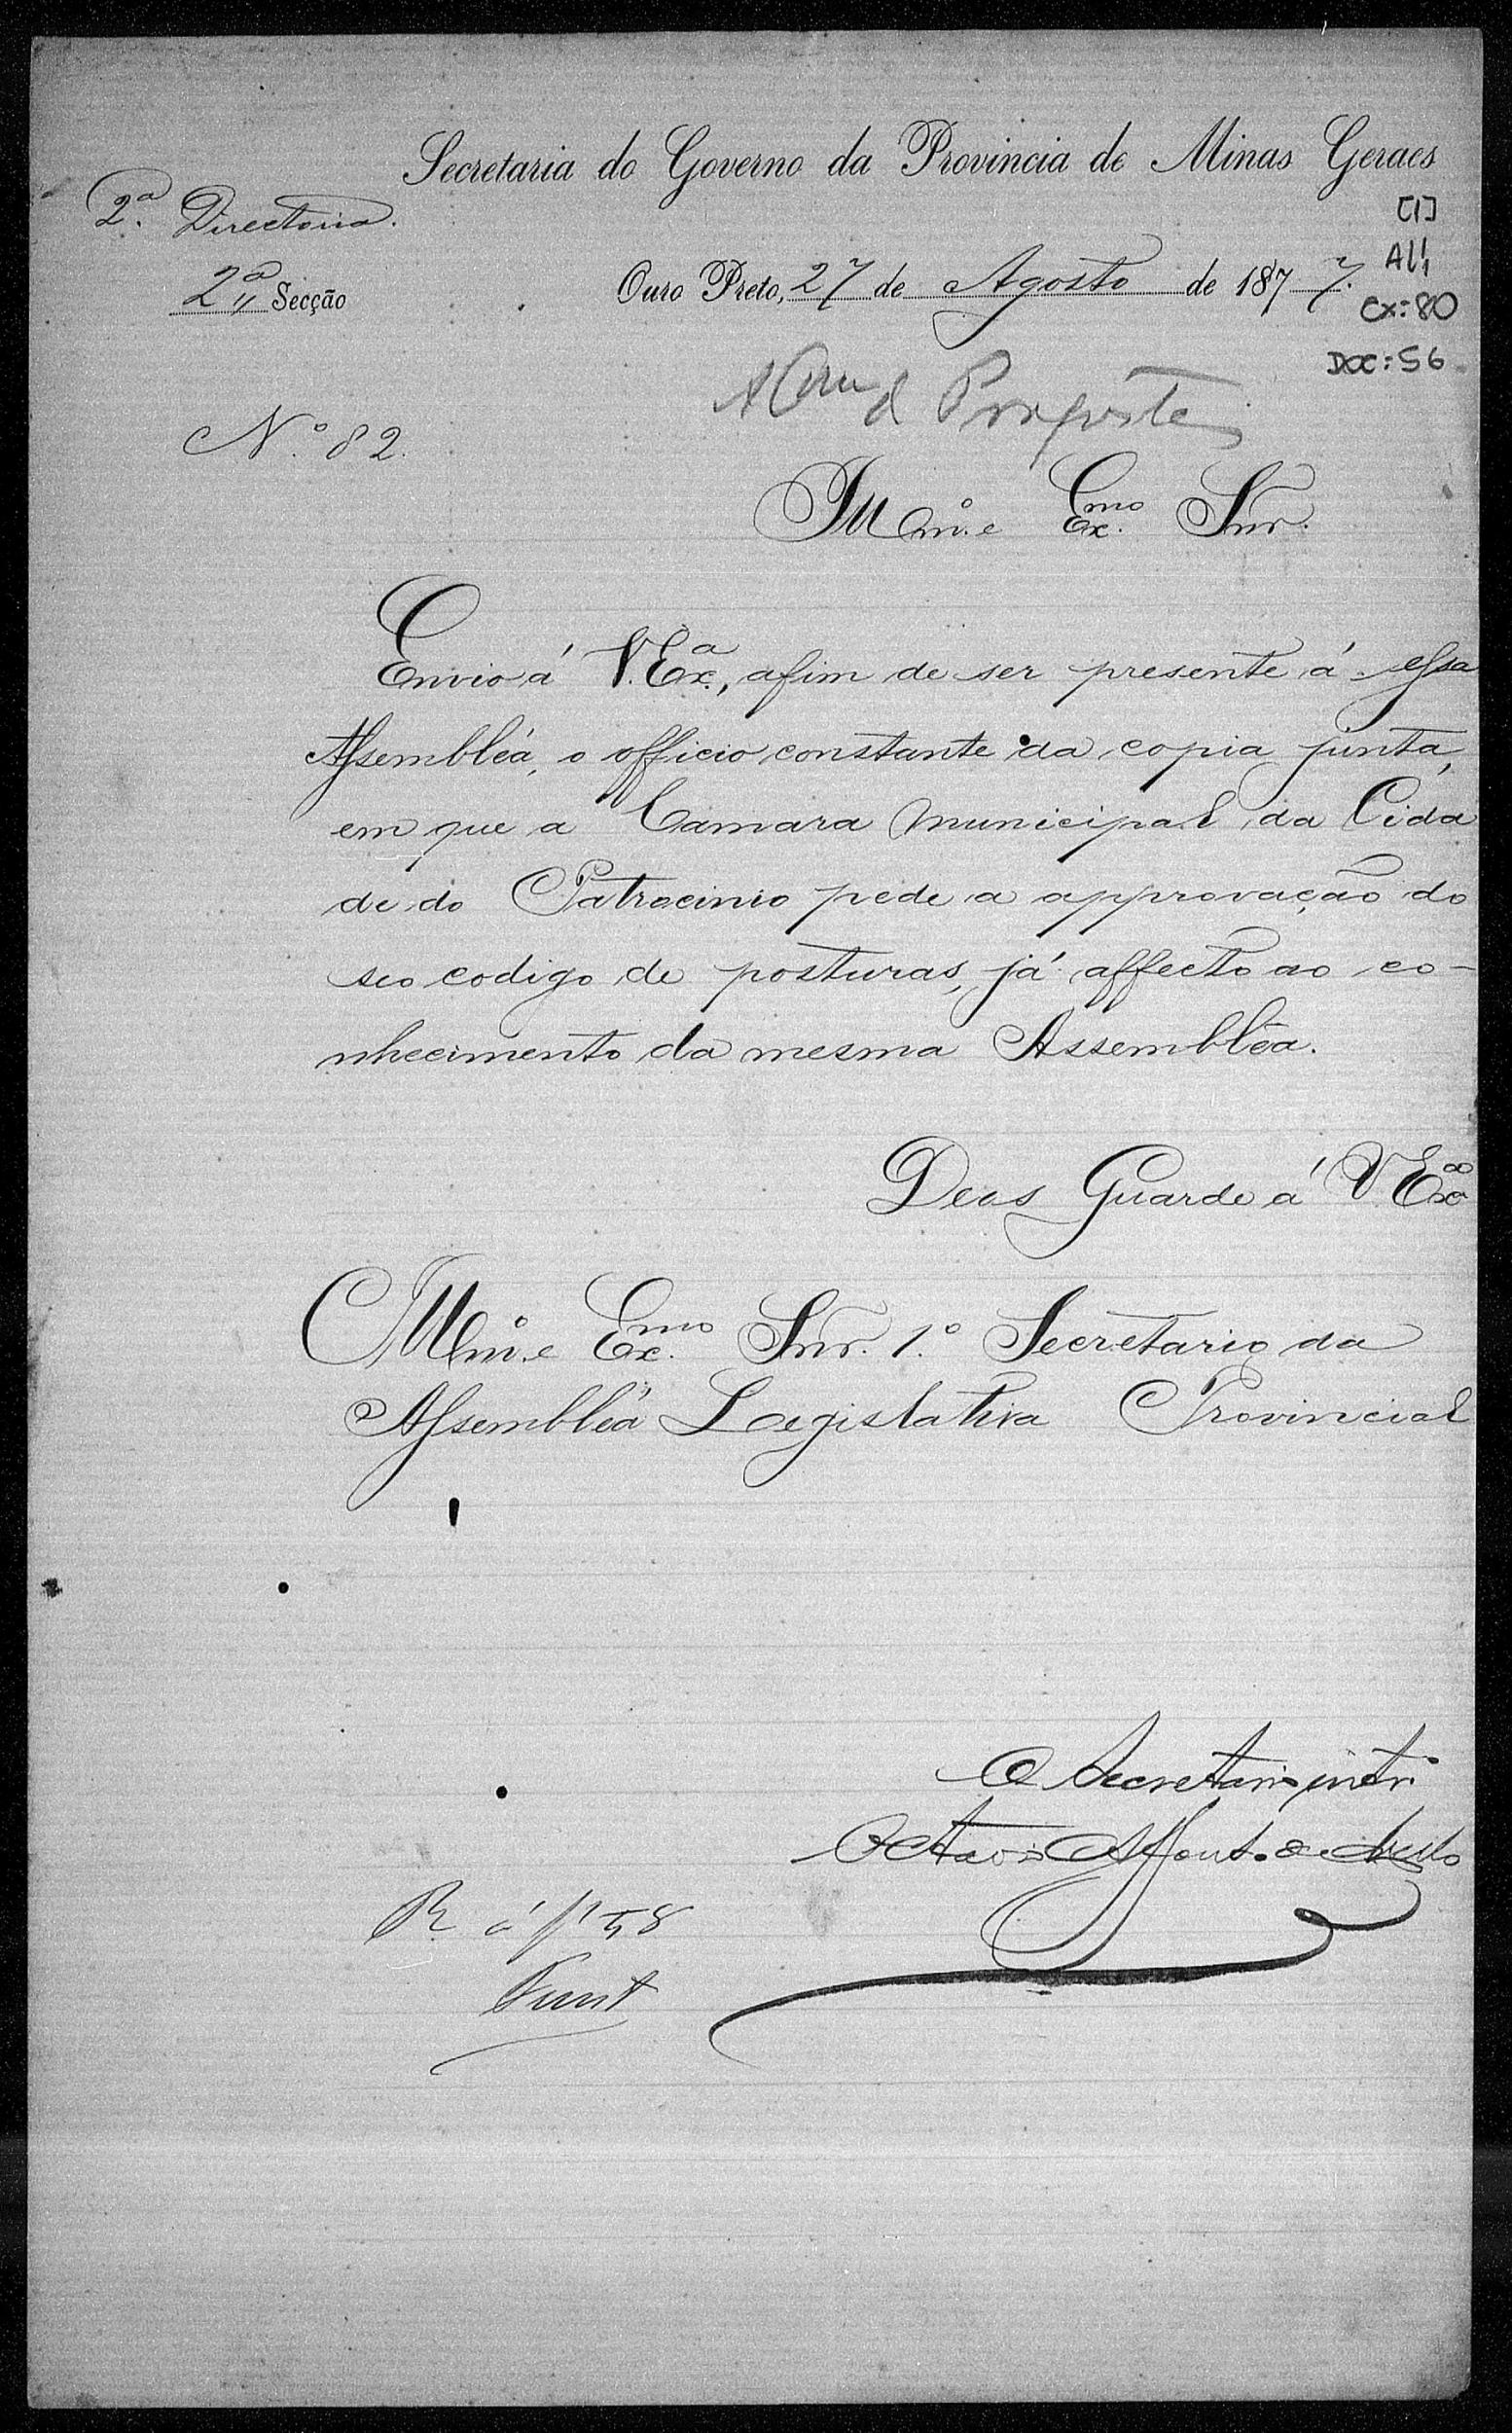 Secretaria do Governo da Provincia de Minas Geraes
2.ª Directoria.
[1]
2ª Secção
Ouro Preto, 27 de Agosto de 1877.
Al1,
CX: 80
DOC: 56
A Com. de
N.º 82.
Illmo. e Exmo. Snr.
Envio á V. Exª., afim de ser presente á essa
Assembléa, o officio constante da copia junta,
em que a Camara Municipal da Cida
de do Patrocinio pede a approvação do
seo codigo de posturas, já affecto ao co-
nhecimento da mesma Assembléa.
Deos Guarde á V. Exª
Illmo. e Exmo. Snr. 1.º Secretario da
Assembléa Legislativa Provincial
O Secretario intr.
Octavio Affonso de Mello
R. á f 58